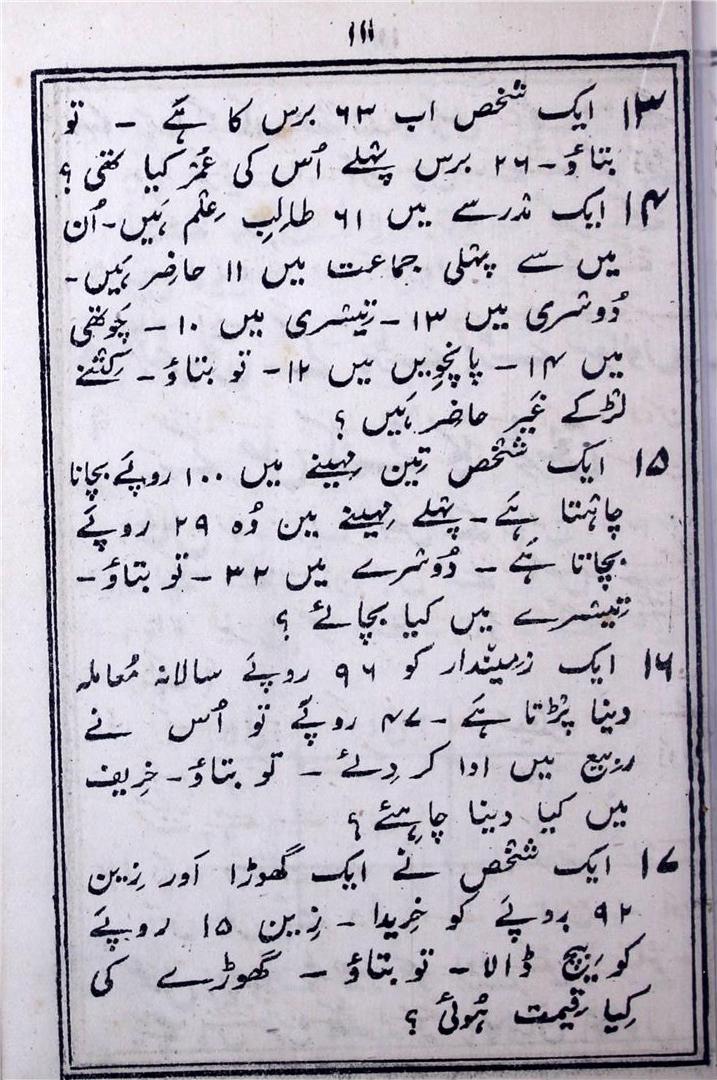 ۱۱۱
۱۳ ایک شخص اب ۶۳ برس کا ہَے ۔ تو
بتاؤ۔ ۲۶ برس پہلے اُس کی عُمر کیا تھی ؟
۱۴ ایک مدرسے میں ۶۱ طالبِ عِلم ہَیں۔ اُن
میں سے پہلی جماعت میں ۱۱ حاضِر ہَیں۔
دُوسری میں ۱۳ ۔ تِیسری میں ۱۰ ۔ چَوتھی
میں ۱۴ ۔ پانچویں میں ۱۲ ۔ تو بتاؤ ۔ کِتنے
لڑکے غَیر حاضِر ہَیں ؟
۱۵ ایک شخص تِین مہینے میں ۱۰۰ روپَے بچانا
چاہتا ہَے ۔ پہلے مہینے میں وُہ ۲۹ روپَے
بچاتا ہَے ۔ دُوسرے میں ۳۲ ۔ تو بتاؤ ۔
تِیسرے میں کیا بچائے ؟
۱۶ ایک زمِیندار کو ۹۶ روپَے سالانہ مُعاملہ
دینا پڑتا ہَے ۔ ۴۷ روپَے تو اُس نے
ربیع میں ادا کر دِئے ۔ تو بتاؤ ۔ خرِیف
میں کیا دینا چاہِئے ؟
۱۷ ایک شخص نے ایک گھوڑا اَور زِین
۹۲ روپَے کو خرِیدا ۔ زِین ۱۵ روپَے
کو بیچ ڈالا ۔ تو بتاؤ ۔ گھوڑے کی
کیا قِیمت ہُوئی ؟